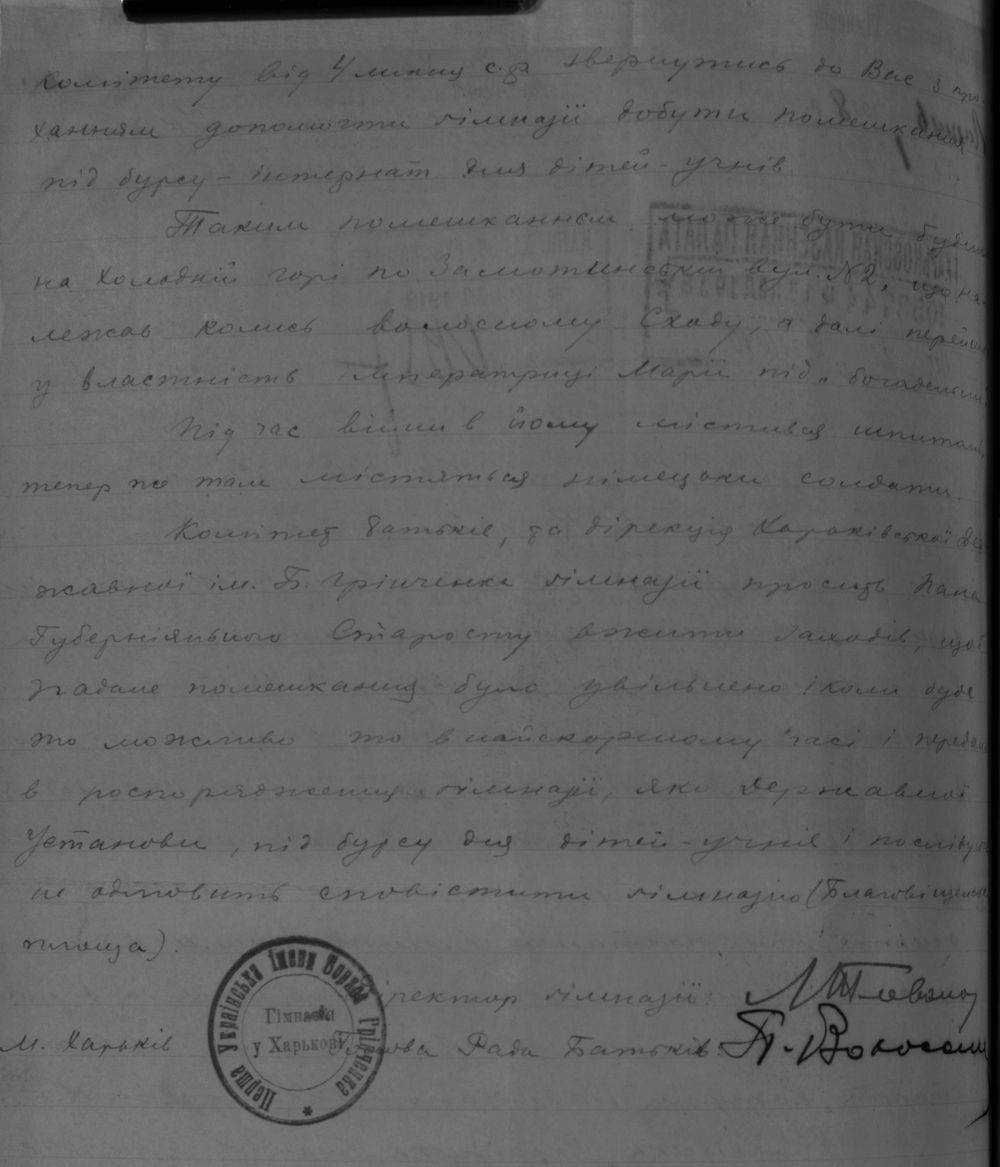 комітету від 4 липня с.р. звернутись до Вас з про-
ханням допомогти гімназії добути помешкання
під бурсу – інтернат для дітей – учнів
Таким помешканнєм може бути будин
на Холодній горі по вул. №2, що на-
лежав колись волосному Сходу, а далі перейшо
у властність імператриці Марії під „богадельні
Під час війни в йому містився шпиталь,
тепер же там містяться німецьки солдати.
Комітет батьків, та дірекція Харьківської Дер
жавної ім. Б. Грінченка гімназії просить Пана
Губерніяльного Старосту вжити заходів, щоб
згадане помешкання було увільнено і коли буде
то можливо то в найскоршому часі і передан
в роспорядження гімназії, яко Державної
Установи, під бурсу для дітей – учнів і
не одмовить сповістити гімназію (Благовіщенськ
площа).
Директор гімназії:
м. Харьків Голова Ради Батьків:
Перша Українська Імени Бориса Грінченка
Гімназія
у Харькові
ХАРЬКОВСКАЯ КАЗЕННАЯ ПАЛАТА